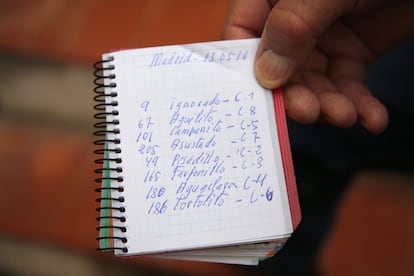 Madrid - 13.05.16
9 ignorado - C-1
67 Agutito - C-8
101 Campanito - C-5
205 Asustado - C-7
49 Pisadillo - C-2
165 Farfonillo - C-3
180 - C-4
186 Tostolito - C-6